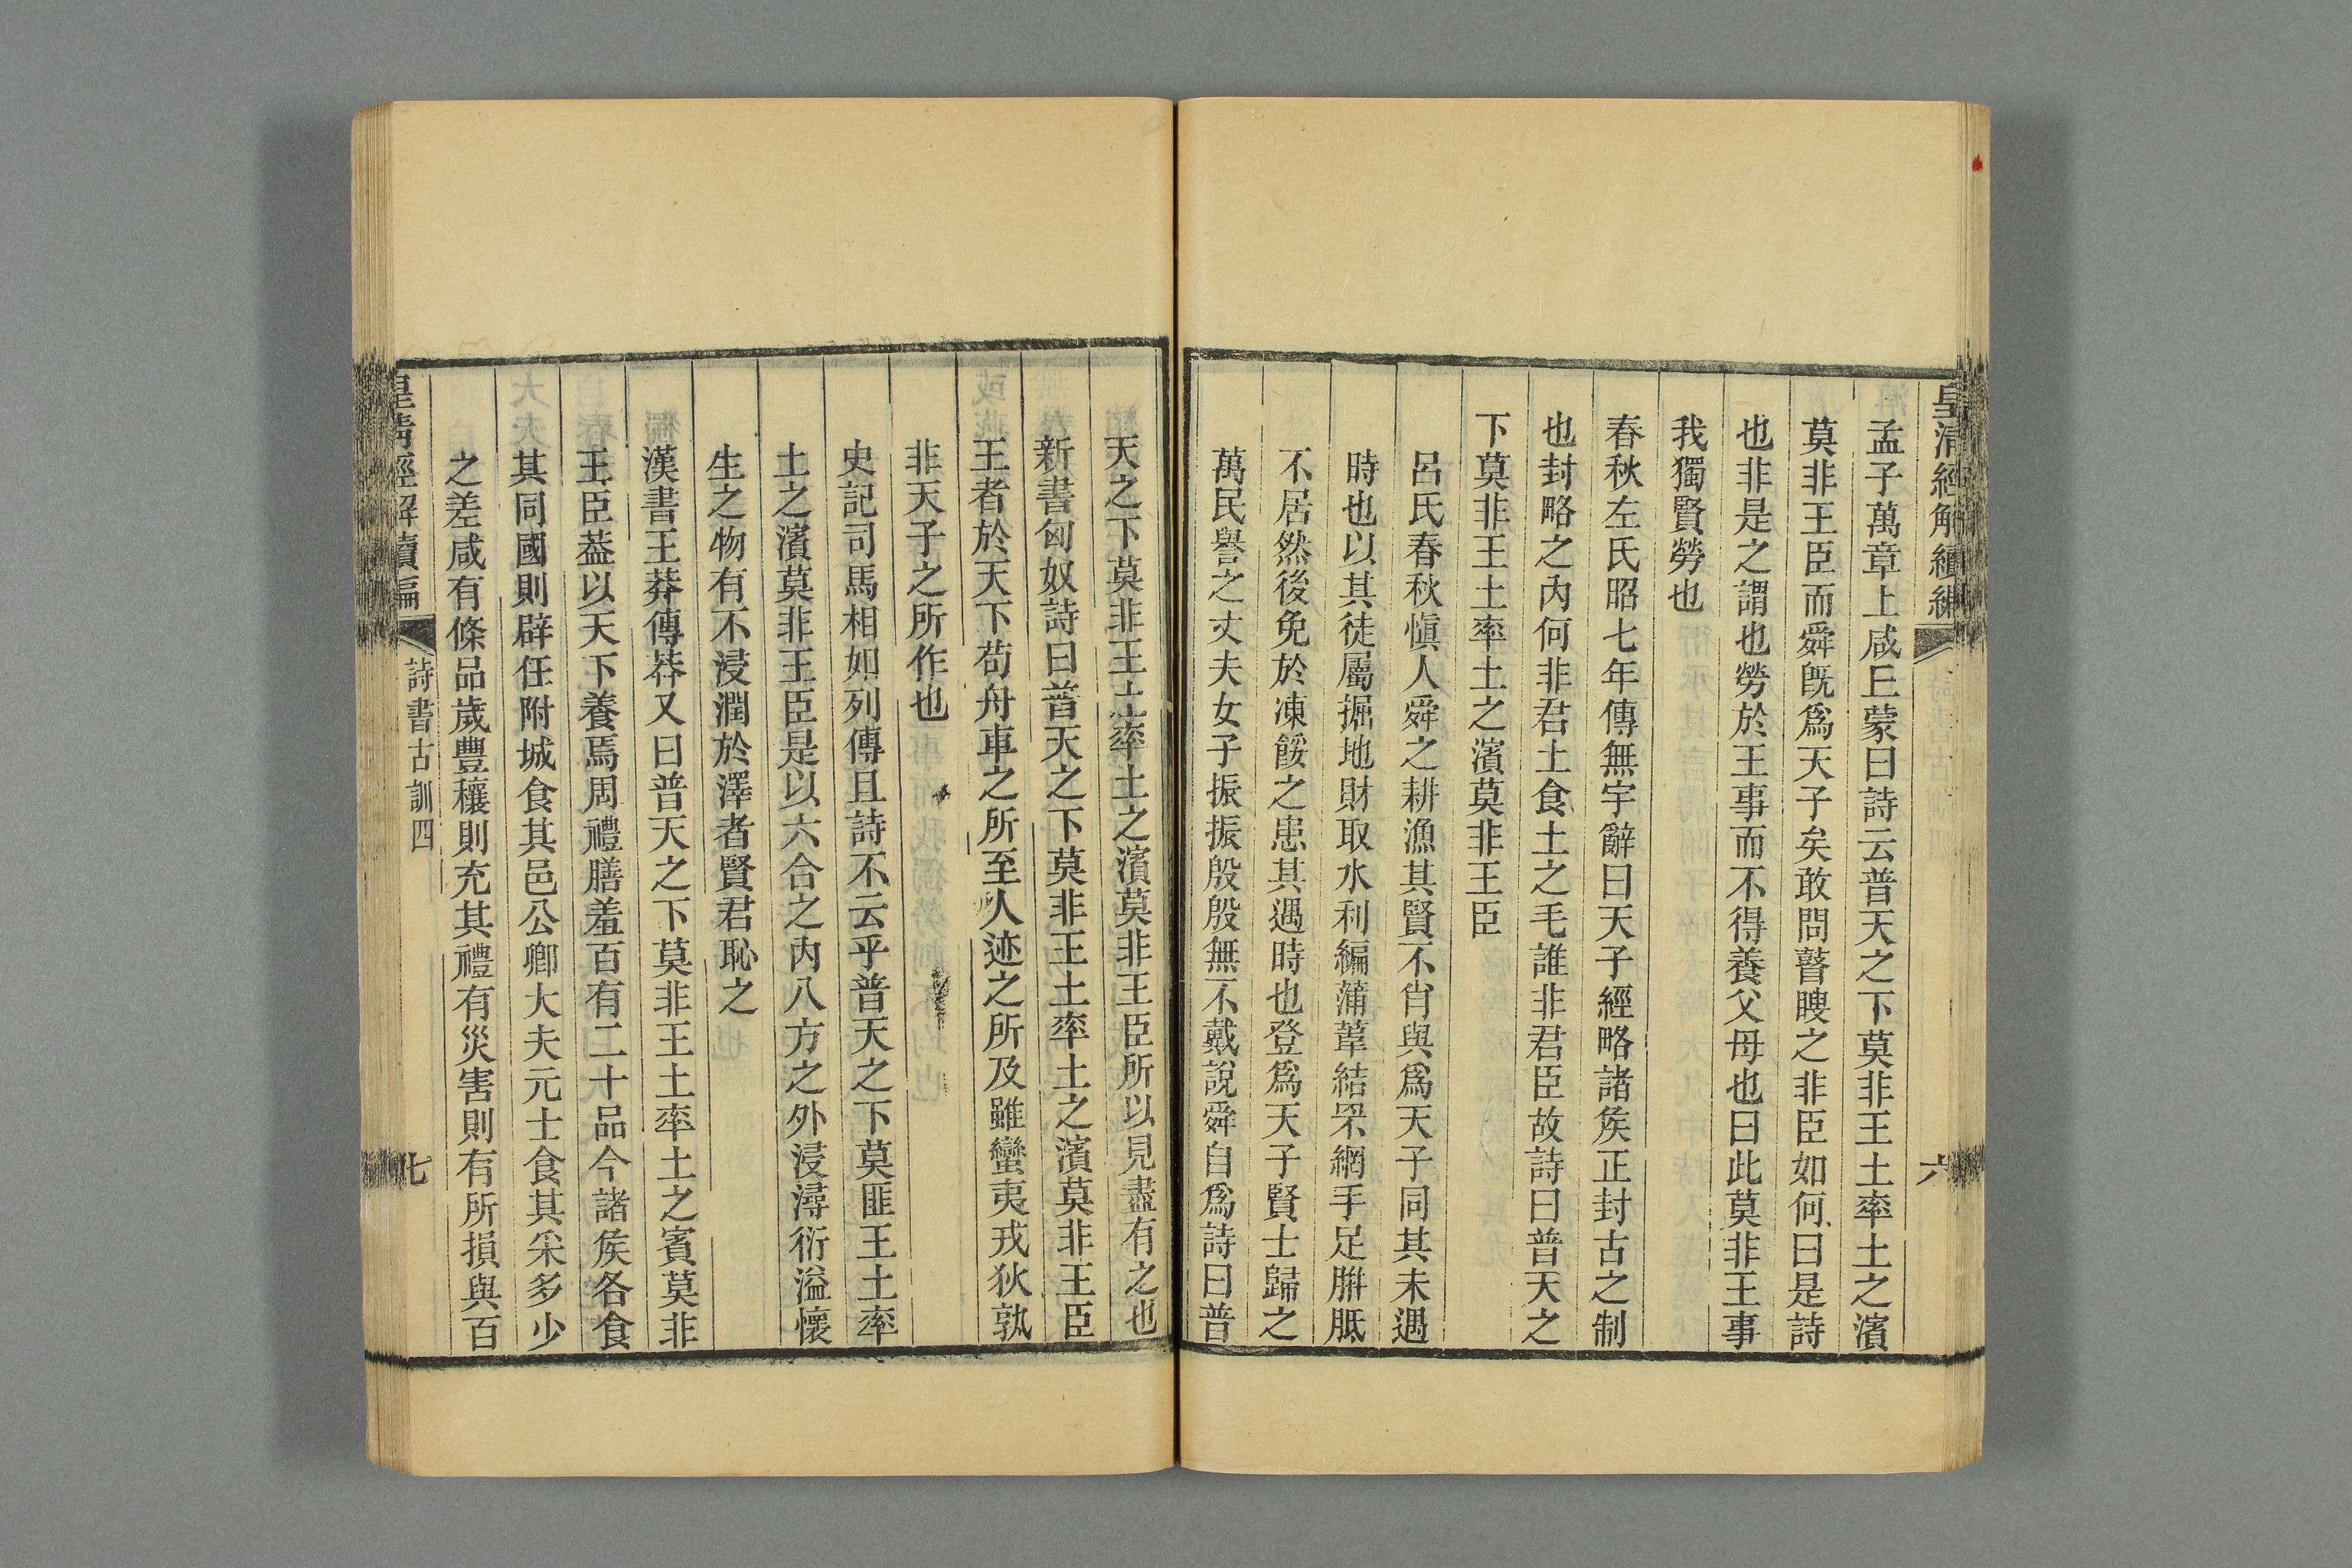 皇清經解續編
六
孟子萬章上咸丘蒙曰詩云普天之下莫非王土率土之濱
莫非王臣而舜旣爲天子矣敢問瞽瞍之非臣如何曰是詩
也非是之謂也勞於王事而不得養父母也曰此莫非王事
我獨賢勞也
春秋左氏昭七年傳無宇辭曰天子經略諸矦正封古之制
也封略之內何非君土食土之毛誰非君臣故詩曰普天之
下莫非王土率土之濱莫非王臣
呂氏春秋愼人舜之耕漁其賢不肖與爲天子同其未遇
時也以其徒屬掘地財取水利編蒲葦結罘網手足胼胝
不居然後免於凍餒之患其遇時也登爲天子賢士歸之
萬民譽之丈夫女子振振殷殷無不戴說舜自爲詩曰普
天之下莫非王土率土之濱莫非王臣所以見盡有之也
新書匈奴詩曰普天之下莫非王土率土之濱莫非王臣
王者於天下苟舟車之所至人迹之所及雖蠻夷戎狄孰
非天子之所作也
史記司馬相如列傳且詩不云乎普天之下莫匪王土率
土之濱莫非王臣是以六合之內八方之外浸潯衍溢懷
生之物有不浸潤於澤者賢君恥之
漢書王莽傳莽又曰普天之下莫非王土率土之賓莫非
王臣葢以天下養焉周禮膳羞百有二十品今諸矦各食
其同國則辟任附城食其邑公卿大夫元士食其采多少
之差咸有條品歲豐穰則充其禮有災害則有所損與百
皇清經解續編
詩書古訓四
七